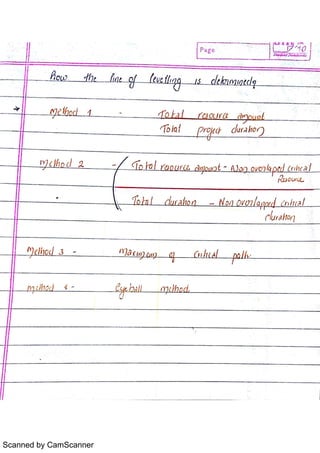 Page
How the line of levelling is determined?
* Method 1 - Total resource amount
Total project duration
Method 2 - Total resource amount - Non overlapped critical
Resource
Total duration - Non overlapped critical
duration
Method 3 - Maximum of critical path.
Method 4 - Eyeball method.
Scanned by CamScanner